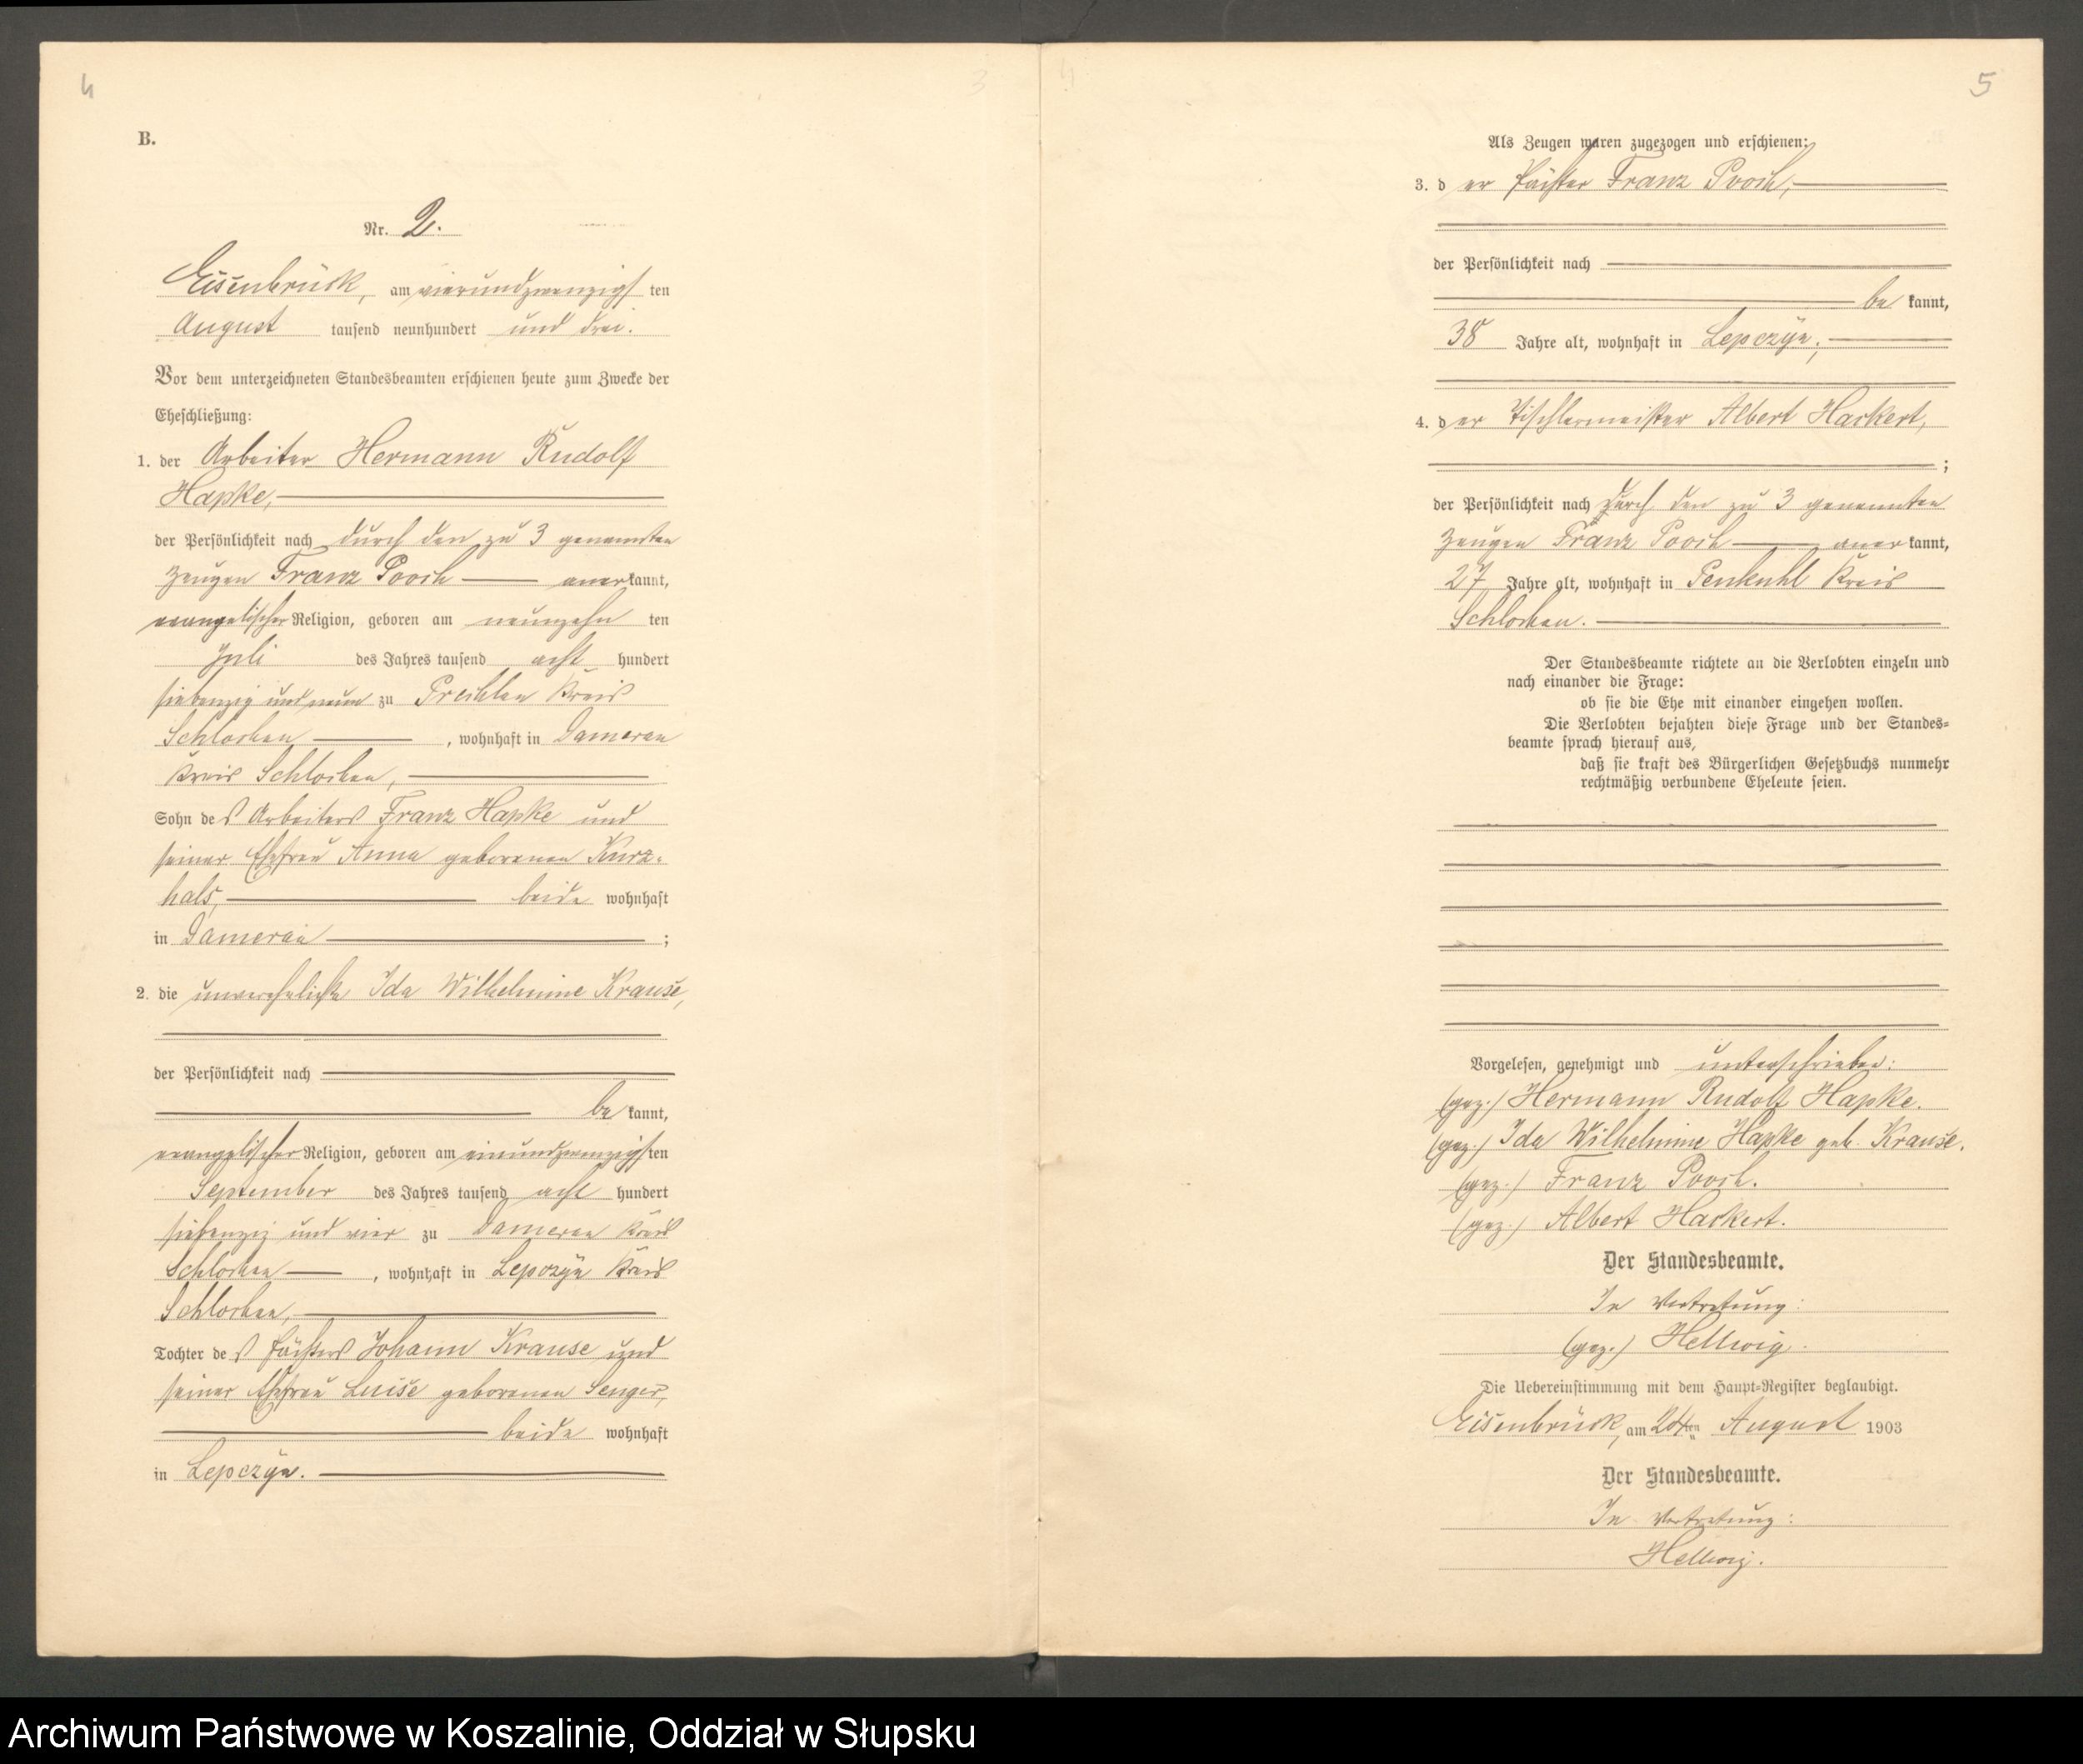 4
B.
Nr. 2.
Eisenbrück, am vierundzwanzigsten
August tausend neunhundert und drei.
Vor dem unterzeichneten Standesbeamten erschienen heute zum Zwecke der
Eheschließung:
1. der Arbeiter Hermann Rudolf
Hapke,
der Persönlichkeit nach durch den zu 3 genannten
Zeugen Franz Pooch anerkannt,
evangelischer Religion, geboren am neunzehnten
Juli des Jahres tausend acht hundert
siebenzig und neun zu Prechlau Kreis
Schlochau, wohnhaft in Damerau
Kreis Schlochau,
Sohn des Arbeiters Franz Hapke und
seiner Ehefrau Anna geborenen Kurz-
hals, beide wohnhaft
in Damerau;
2. die unverehelichte Ida Wilhelmine Krause,
der Persönlichkeit nach
be kannt,
evangelischer Religion, geboren am einundzwanzigsten
September des Jahres tausend acht hundert
siebenzig und vier zu Damerau Kreis
Schlochau, wohnhaft in Lepczyn Kreis
Schlochau,
Tochter des Pächters Johann Krause und
seiner Ehefrau Luise geborenen Senger,
beide wohnhaft
in Lepczyn.
5
Als Zeugen waren zugezogen und erschienen:
3. der Pächter Franz Pooch,
der Persönlichkeit nach
be kannt,
38 Jahre alt, wohnhaft in Lepczyn;
4. der Tischlermeister Albert Hackert,
;
der Persönlichkeit nach durch den zu 3 genannten
Zeugen Franz Pooch anerkannt,
27 Jahre alt, wohnhaft in Penkuhl Kreis
Schlochau.
Der Standesbeamte richtete an die Verlobten einzeln und
nach einander die Frage:
ob sie die Ehe mit einander eingehen wollen.
Die Verlobten bejahten diese Frage und der Standes-
beamte sprach hierauf aus,
daß sie kraft des Bürgerlichen Gesetzbuchs nunmehr
rechtmäßig verbundene Eheleute seien.
Vorgelesen, genehmigt und unterschrieben:
(gez.) Hermann Rudolf Hapke.
(gez.) Ida Wilhelmine Hapke geb. Krause.
(gez.) Franz Pooch.
(gez.) Albert Hackert.
Der Standesbeamte.
In Vertretung:
(gez.) Hellwig.
Die Uebereinstimmung mit dem Haupt-Register beglaubigt.
Eisenbrück, am 24ten August 1903
Der Standesbeamte.
In Vertretung:
Hellwig.
Archiwum Państwowe w Koszalinie, Oddział w Słupsku